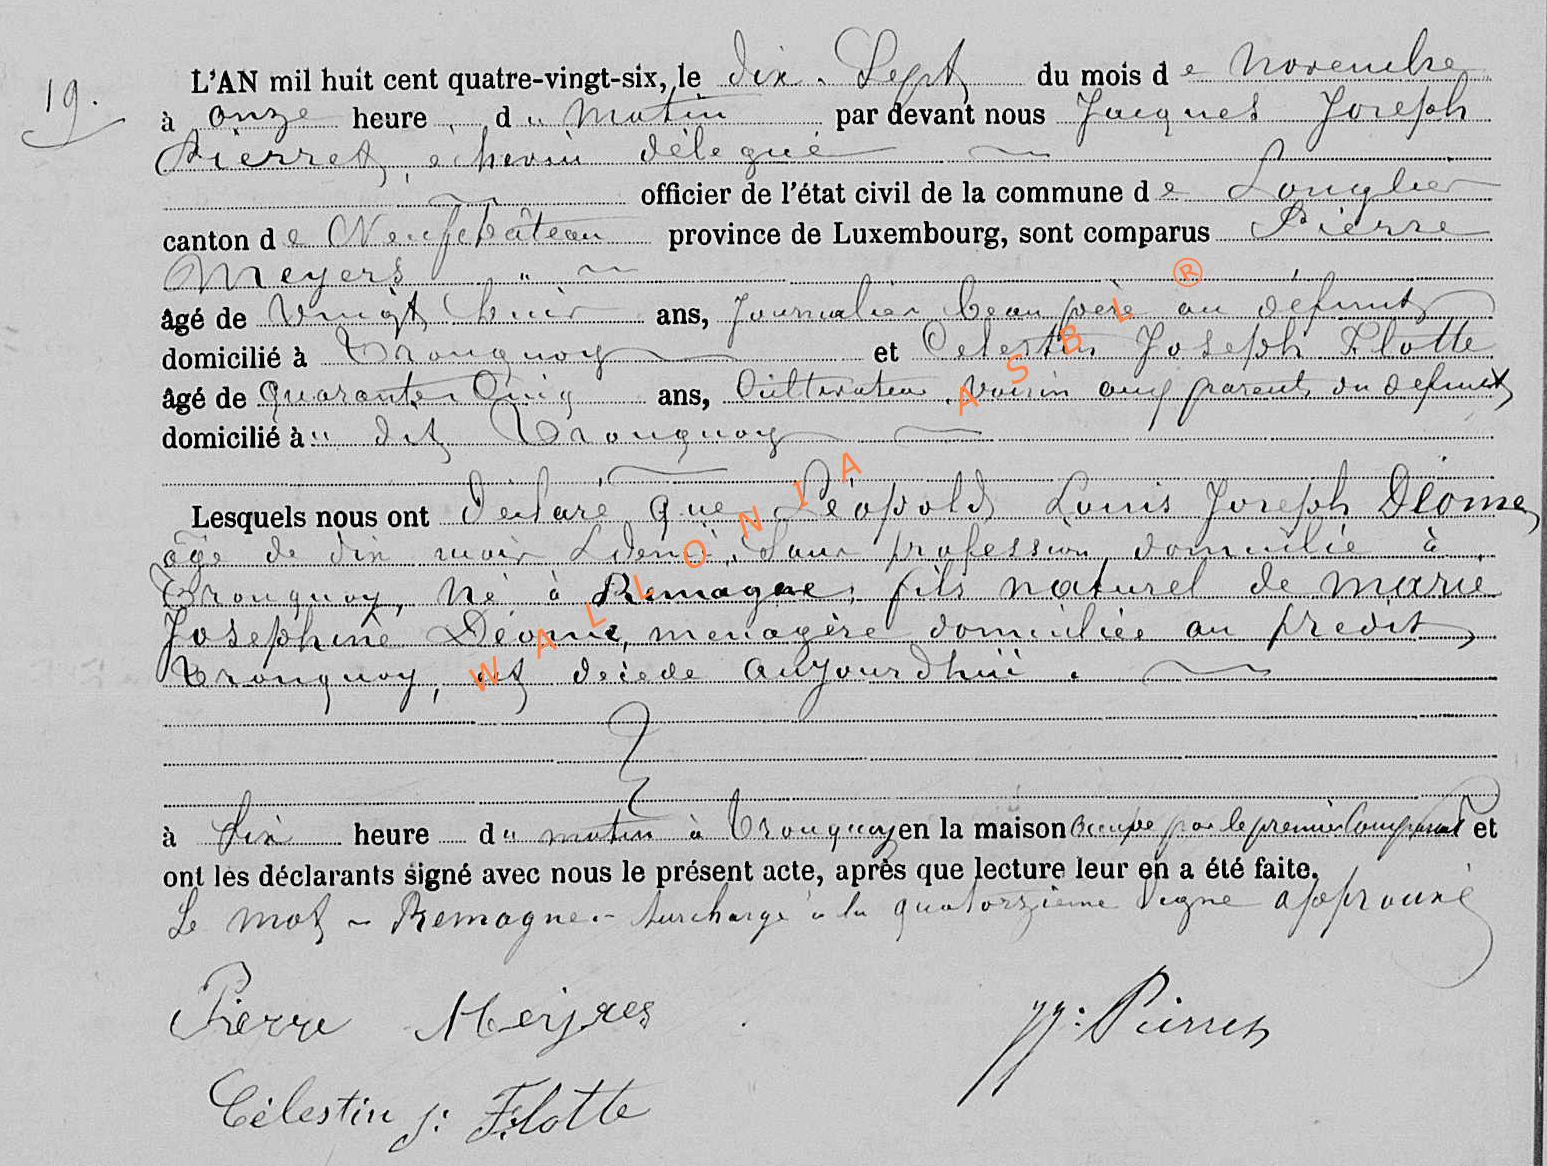 19.
L'AN mil huit cent quatre-vingt-six, le dix-sept du mois de novembre
à onze heure du matin par devant nous Jacques Joseph
Pierret, echevin délegué
officier de l'état civil de la commune de Longlier
canton de Neufchâteau province de Luxembourg, sont comparus Pierre
Meyers "
âgé de vingt huit ans, Journalier beau père au défunt
domicilié à Tronquoy et Celestin Joseph Flotte
âgé de quarante cinq ans, Cultivateur voisin aux parents du defunt
domicilié à u dit Tronquoy
Lesquels nous ont déclaré que Léopold Louis Joseph Déome,
âge de dix mois & demi, Sans profession domicilié à
Tronquoy, né à Remagne, fils naturel de marie
Josephine Déome, menagère domiciliée au predit
Tronquoy, est décéde aujourdhui.
à dix heure du matin à Tronquoy en la maison occupée par le premier Comparant et
ont les déclarants signé avec nous le présent acte, après que lecture leur en a été faite.
Le mot - Remagne - surchargé à la quatorzième ligne approuvé
Pierre Meijres
JJ: Pierret
Célestin J: Flotte
WALLONIA ASBL ®